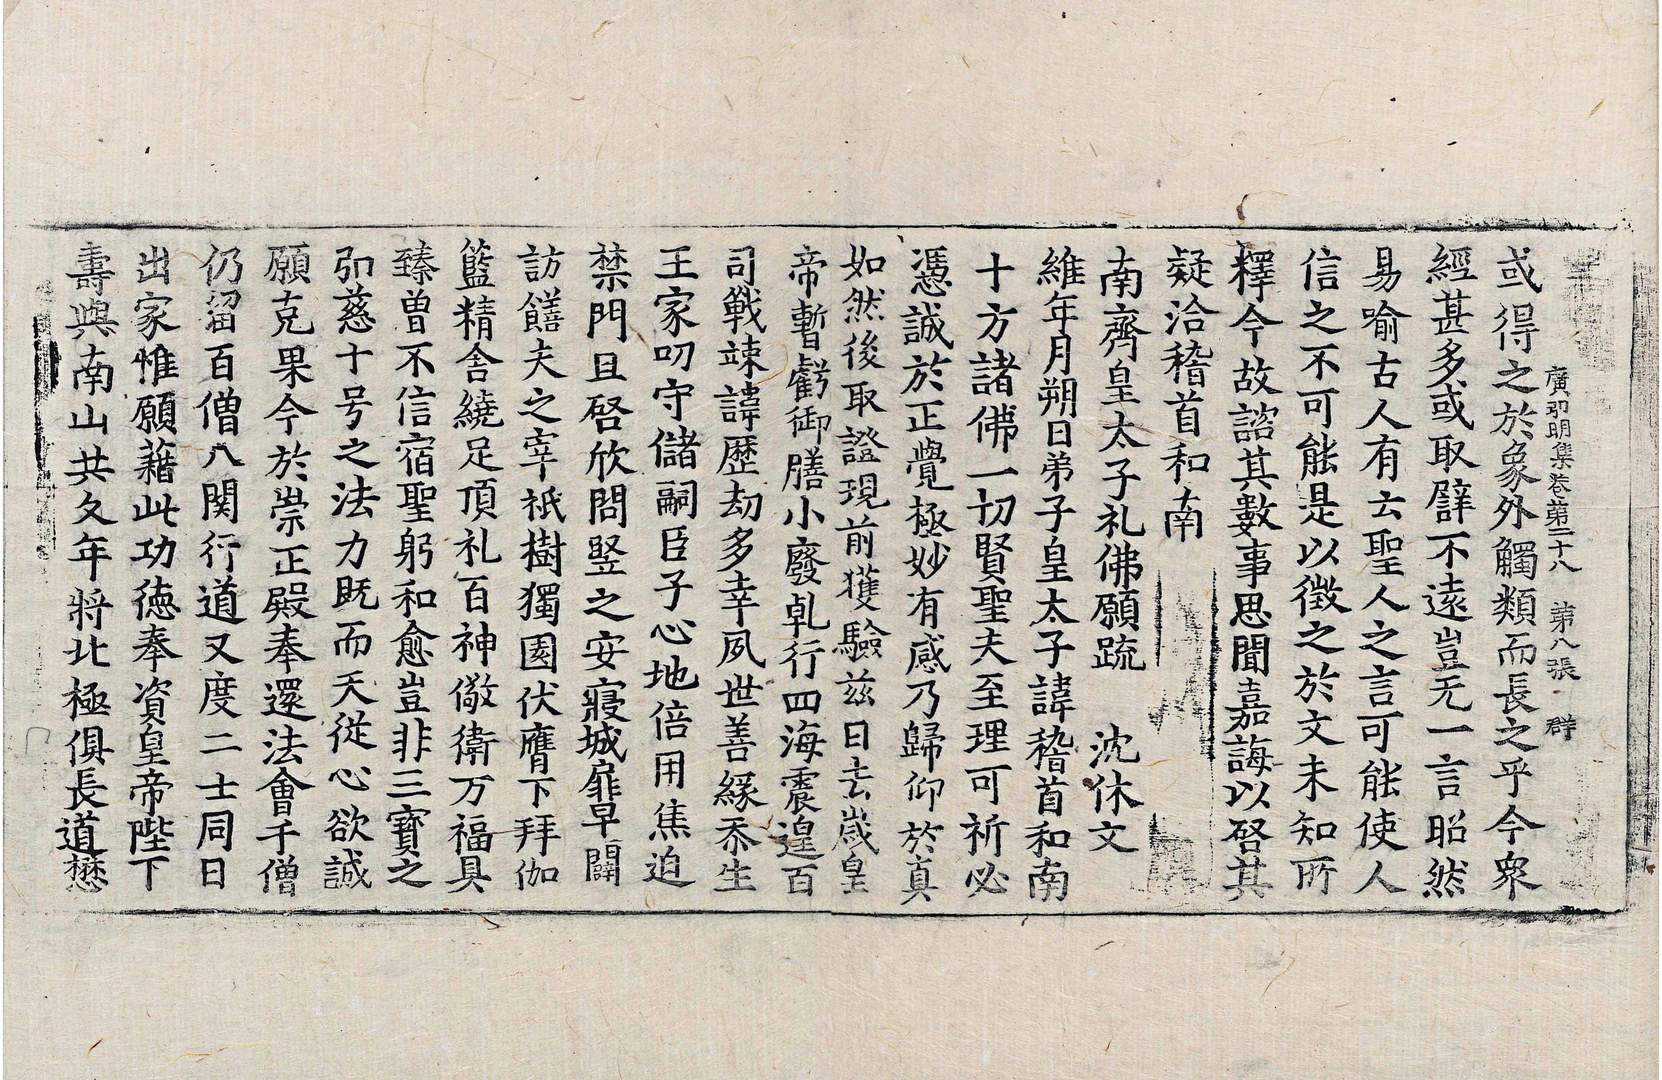 廣弘明集卷第二十八　第八張　群
或得之於象外觸類而長之乎今衆
經甚多或取譬不遠豈无一言昭然
易喻古人有云聖人之言可能使人
信之不可能是以徵之於文未知所
釋今故諮其數事思聞嘉誨以啓其
疑洽稽首和南
南齊皇太子礼佛願疏　沈休文
維年月朔日弟子皇太子諱稽首和南
十方諸佛一切賢聖夫至理可祈必
憑誠於正覺極妙有感乃歸仰於真
如然後取證現前獲驗茲日去歲皇
帝暫虧御膳小廢乹行四海震遑百
司戰竦諱歷劫多幸夙世善緣忝生
王家叨守儲嗣臣子心地倍用焦迫
禁門且啓欣問竪之安寢城扉早闢
訪饍夫之宰祇樹獨園伏膺下拜伽
籃精舍繞足頂礼百神儆衛万福具
臻曾不信宿聖躬和愈豈非三寶之
弘慈十号之法力既而天從心欲誠
願克果今於崇正殿奉還法會千僧
仍留百僧八関行道又度二士同日
出家惟願藉此功德奉資皇帝陛下
壽與南山共久年將北極俱長道懋